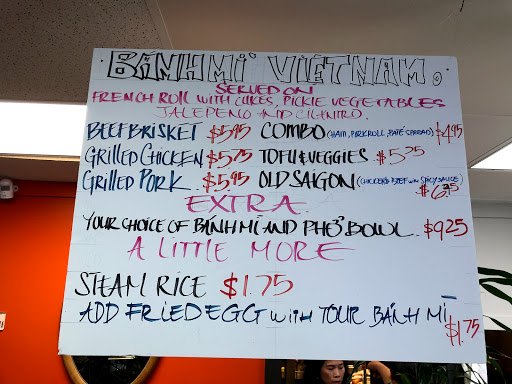 BÁNH MÌ VIỆTNAM.
SERVED ON
FRENCH ROLL WITH CUKES, PICKLE VEGETABLES
JALEPENO AND CILANTRO.
BEEF BRISKET $5.95 COMBO (HAM, PORK ROLL, PATÉ SPREAD) $4.95
GRILLED CHICKEN $5.75 TOFU & VEGGIES $5.25
GRILLED PORK $5.95 OLD SAIGON (CHICKEN & BEEF w/ SPICY SAUCE) $6.25
EXTRA
YOUR CHOICE OF BÁNH MÌ AND PHỞ BOWL $9.25
A LITTLE MORE
STEAM RICE $1.75
ADD FRIED EGG WITH YOUR BÁNH MÌ $1.75